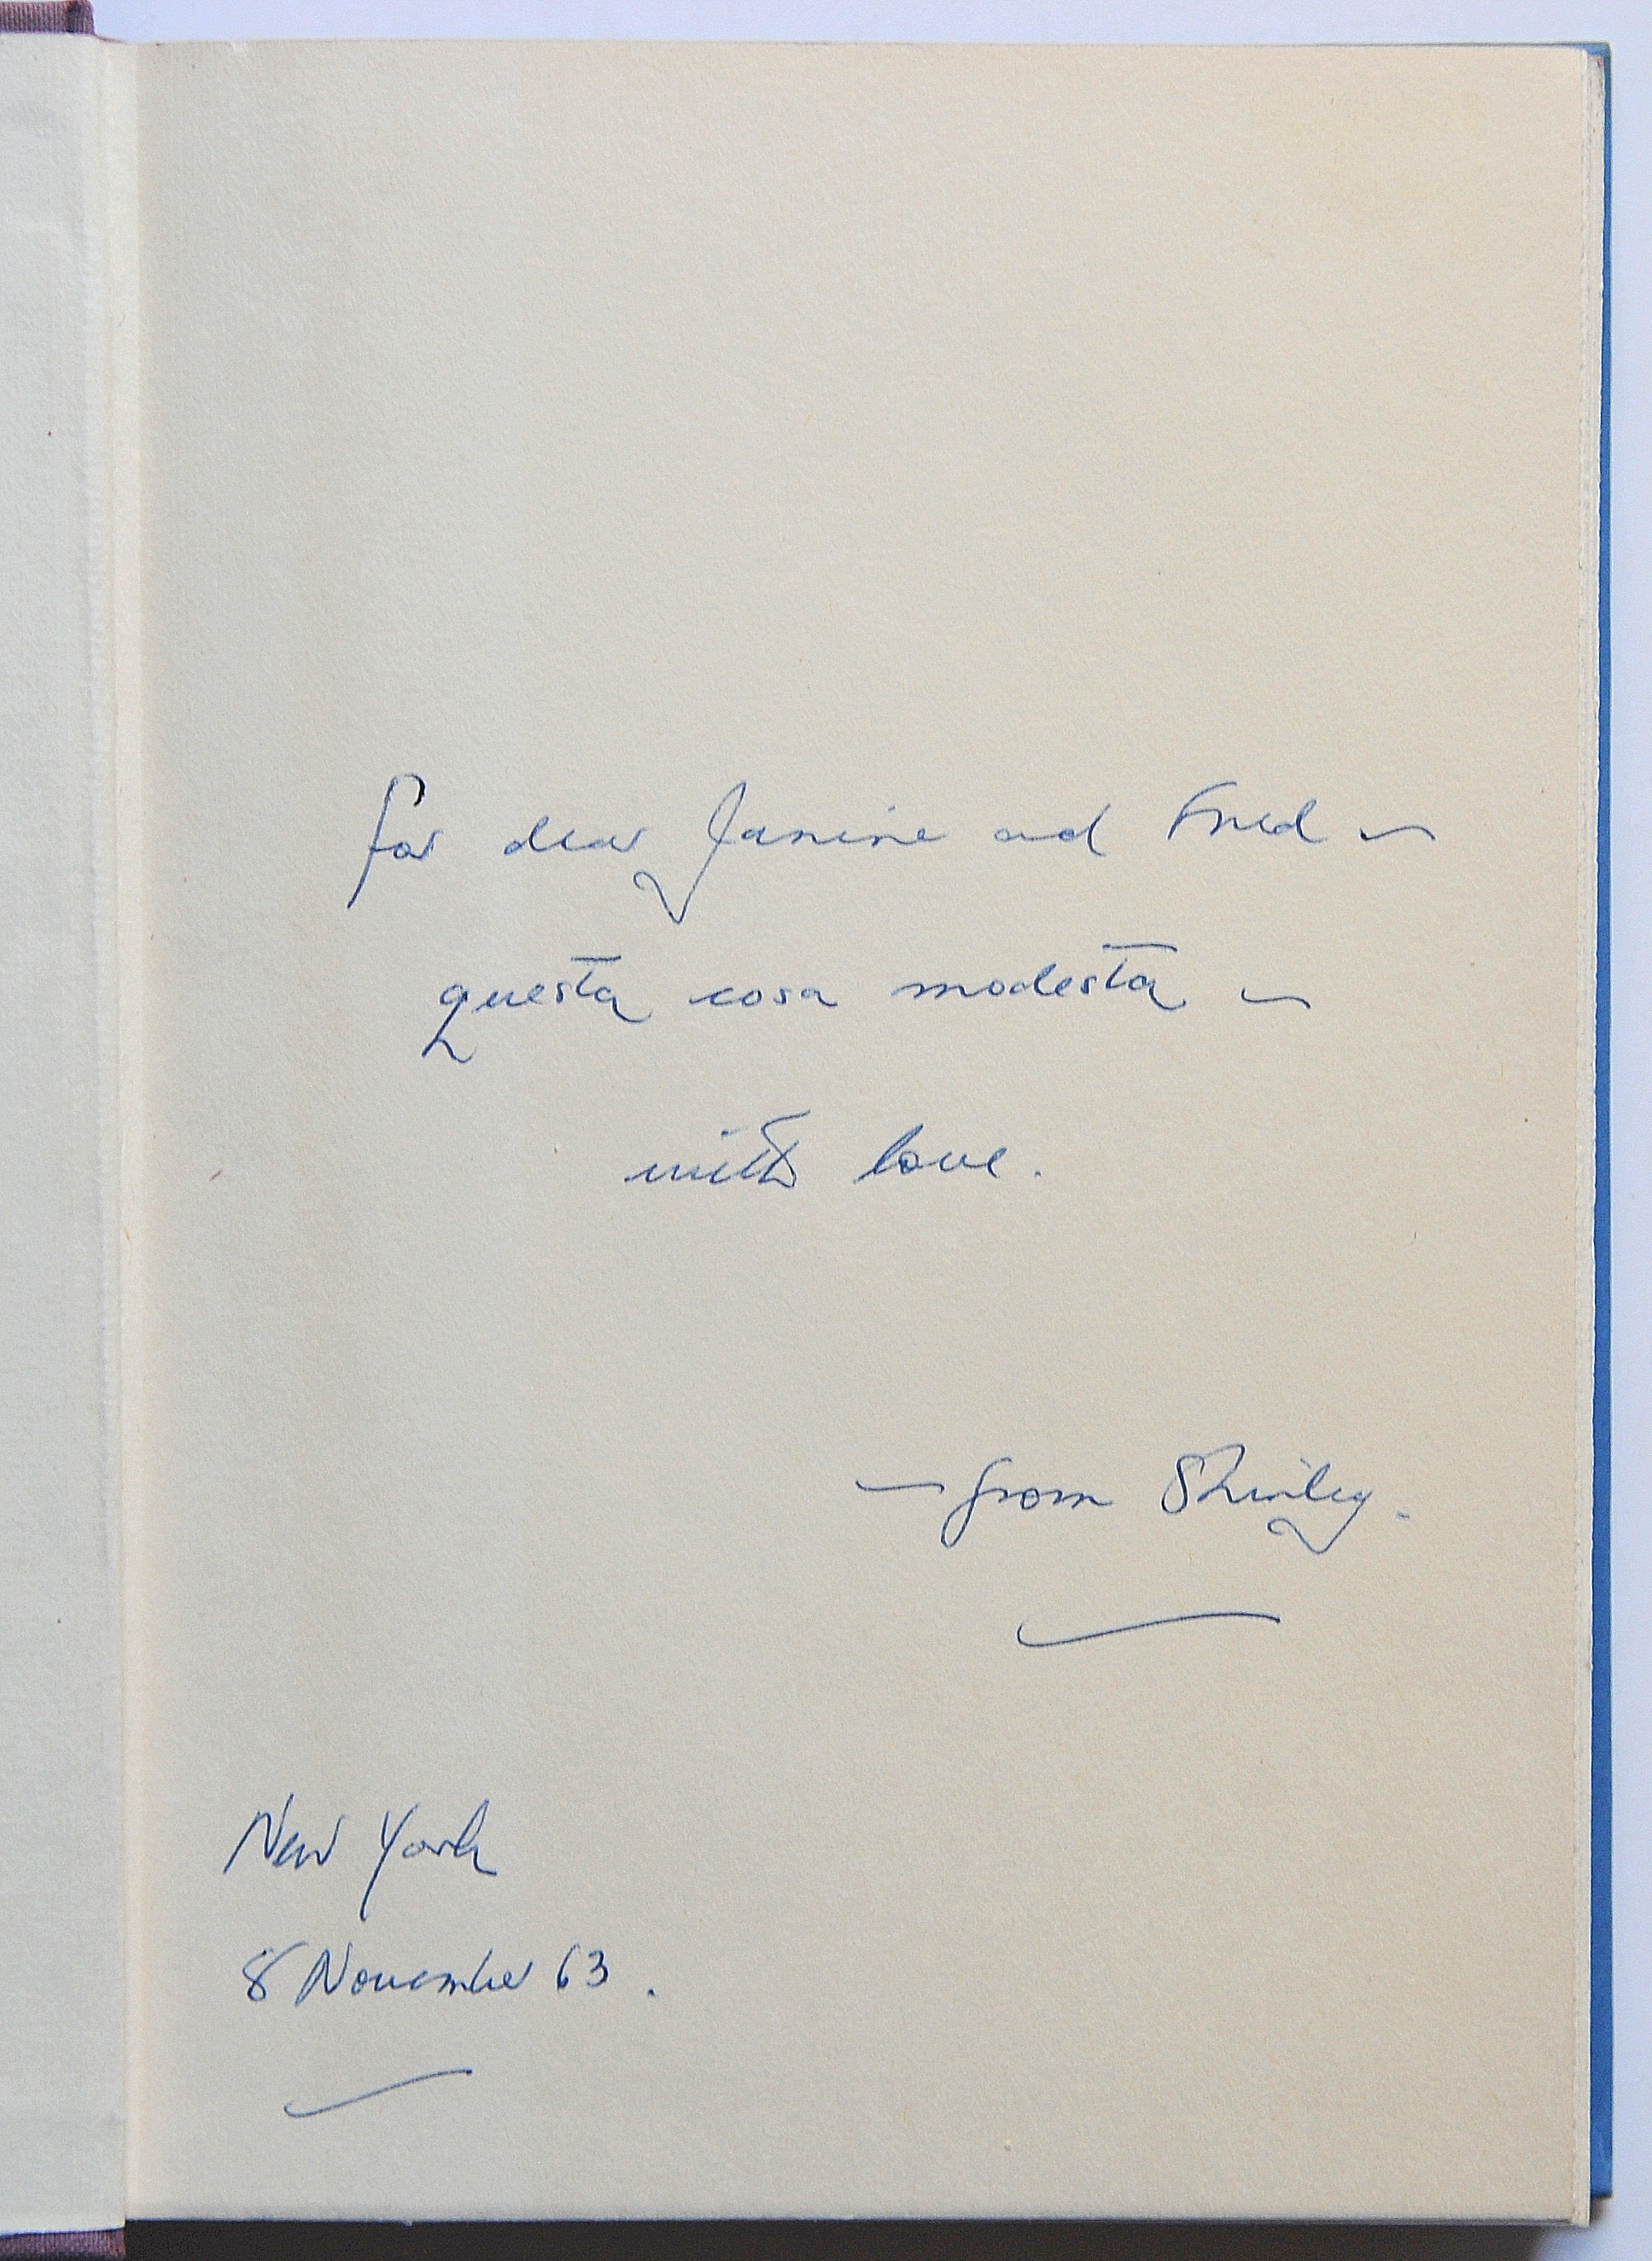 for dear Janine and Fred —
questa cosa modesta —
with love.
— from Shirley.
New York
8 November 63.